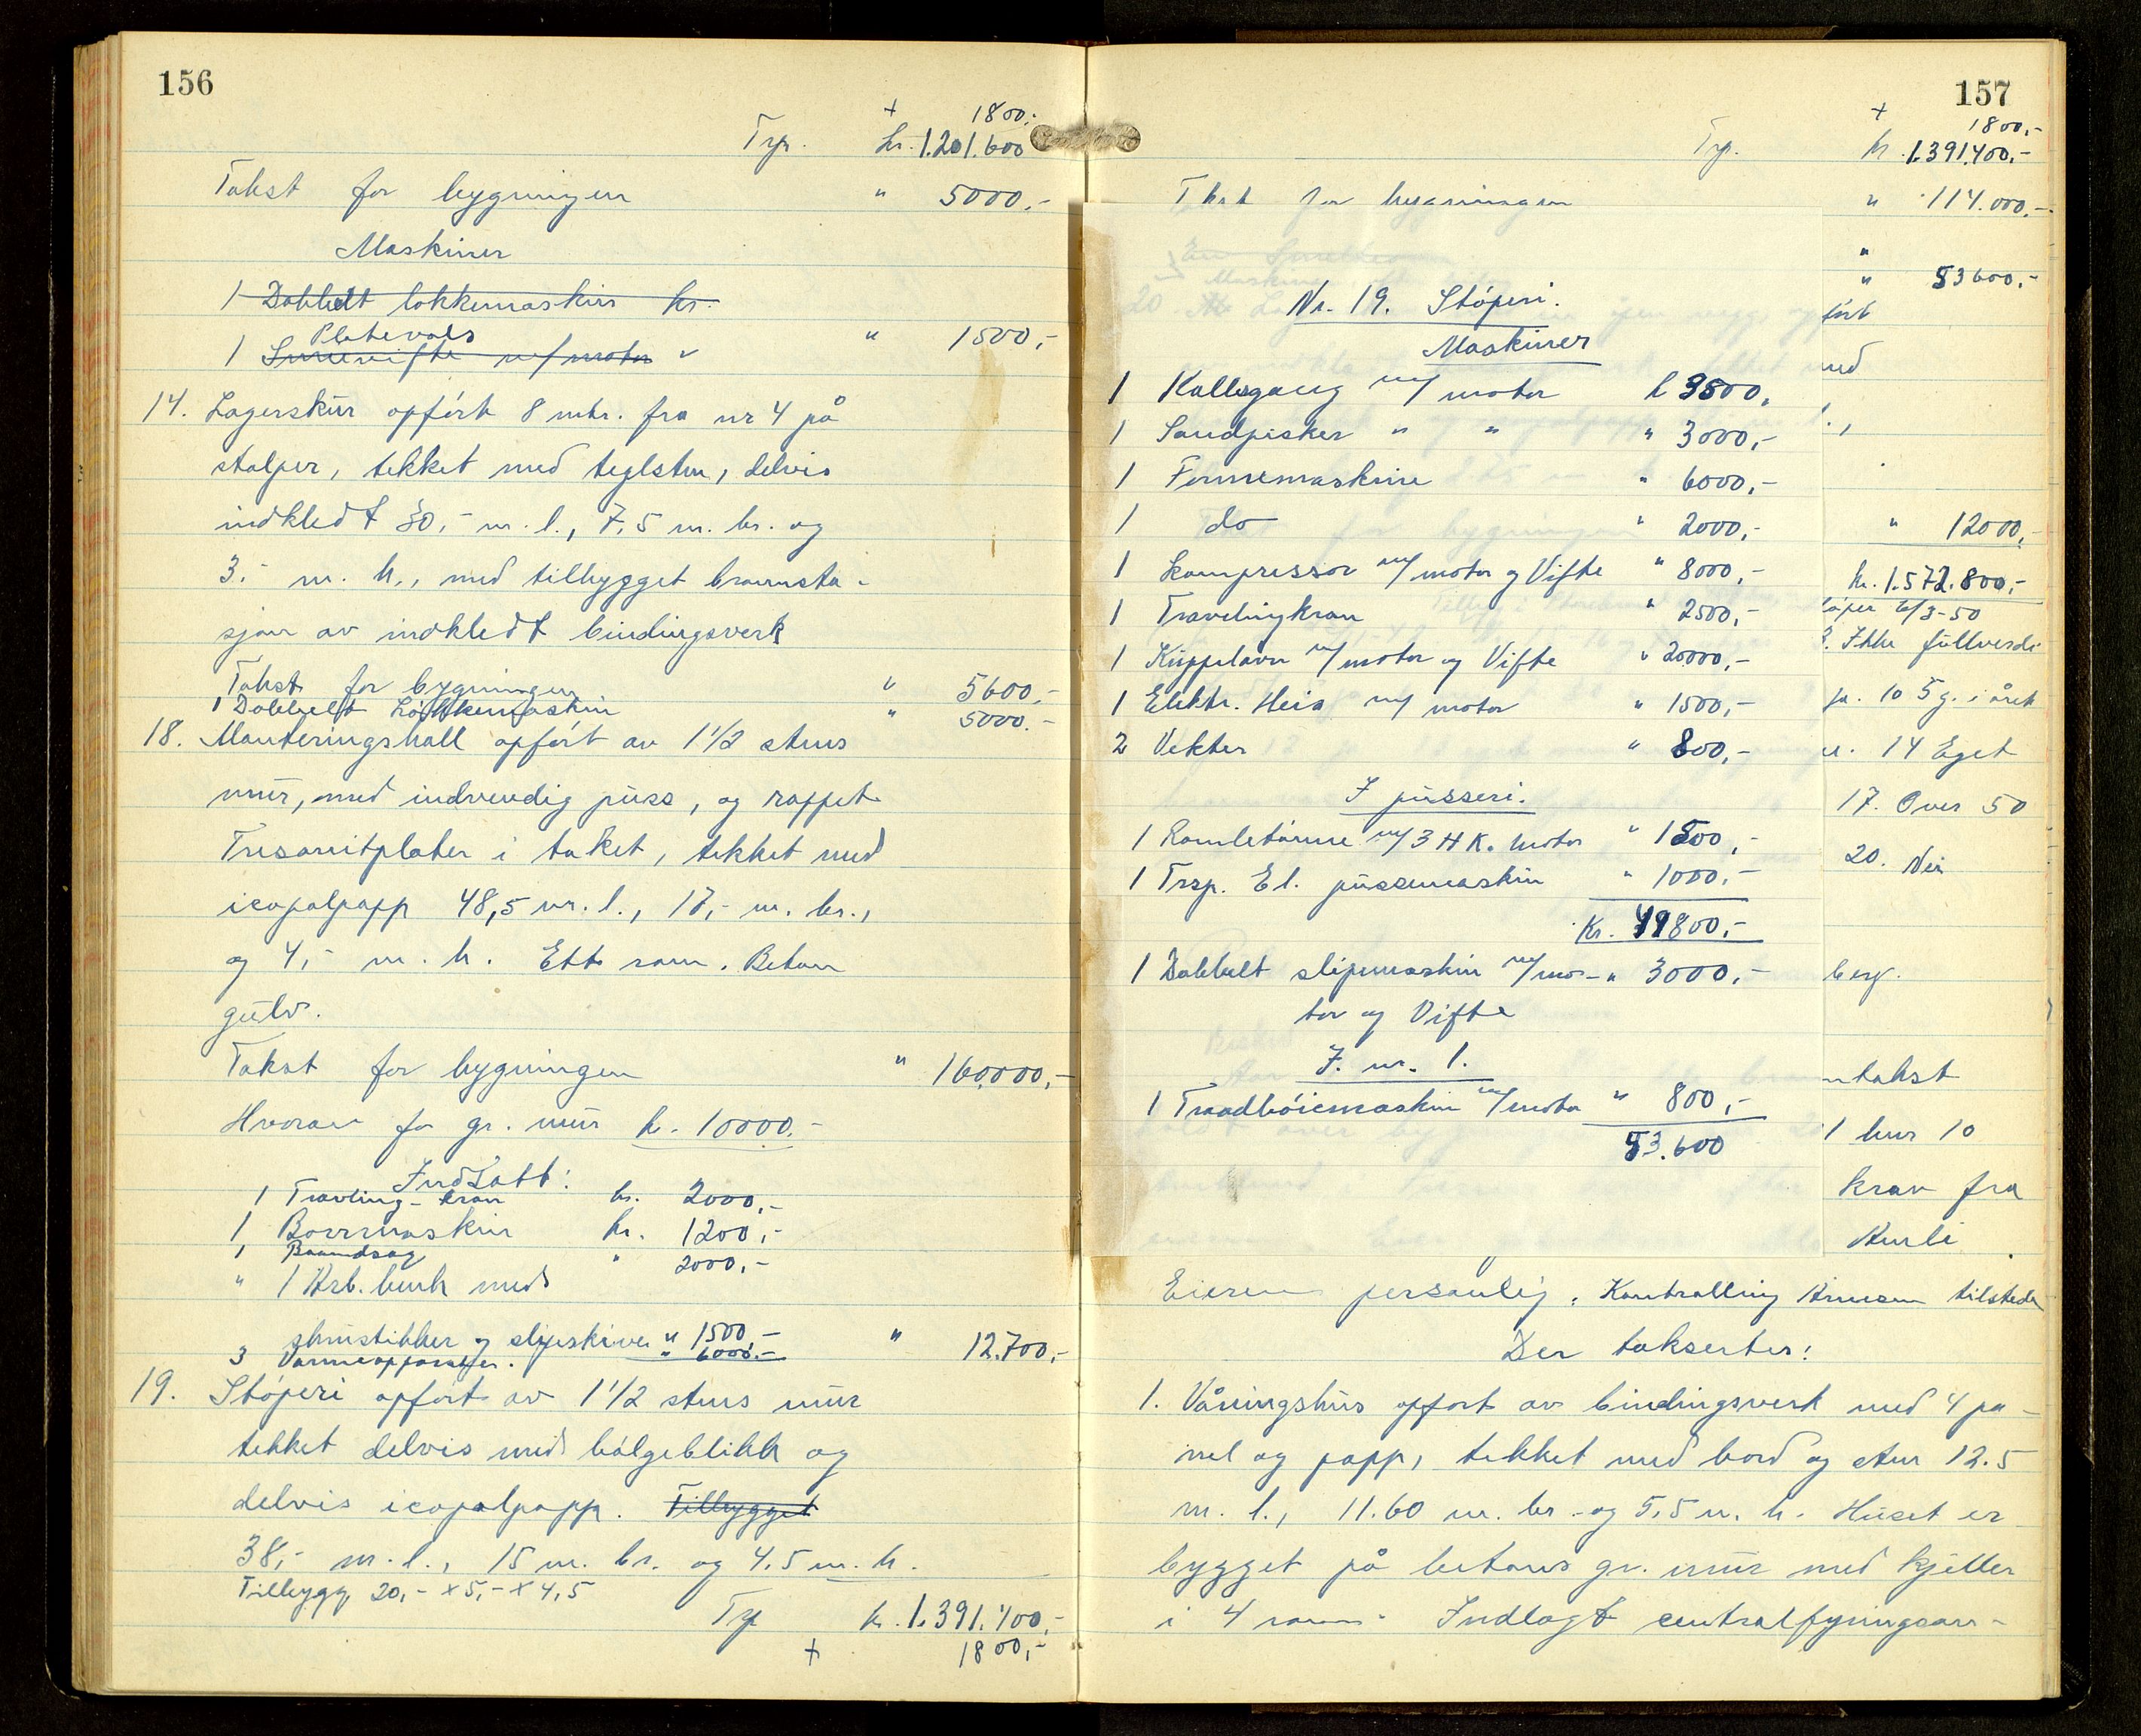 156
+ 1800.-
Trp. kr. 1.201.600
Takst for bygningen " 5000.-
Maskiner
1 Dobbelt lokkemaskin kr.
Platevals
1 Smievifte m/motor " " 1500,-
14. Lagerskur opfört 8 mtr. fra nr 4 på
stolper, tekket med teglsten, delvis
indkledt 30,- m. l., 7,5 m. br. og
3.- m. h., med tilbygget brannsta-
sjon av indkledt bindingsverk
Takst for bygningen " 5600,-
1 Dobbelt Lokkemaskin " 5000.-
18. Monteringshall opfört av 1 1/2 stens
mur, med indvendig puss, og rappet
Tresonitplater i taket, tekket med
icopalpapp 48,5 m. l., 17,- m. br.,
og 4,- m. h. Ett rom. Beton
gulv.
Takst for bygningen " 160.000,-
Hvorav for gr. mur kr. 10000.-
Indsatt:
1 Travling-kran kr. 2000,-
1 Borrmaskin kr. 1200,-
1 Baandsag " 2000,-
" 1 Arb. benk med
skrustikker og slipeskive " 1500,- " 12.700,-
3 Varmeapparater. " 6000.-
19. Stöperi opfört av 1 1/2 stens mur
tekket delvis med bölgeblikk og
delvis icopalpapp. Tilbygget
38,- m. l., 15 m. br. og 4.5 m. h.
Tilbygg 20,- x 5,- x 4,5
Trp kr. 1.391.400,-
+ 1800,-
157
+ 1800,-
Trp. kr. 1.391.400,-
Takst for bygningen " 114.000.-
"
" 53600,-
Nr. 19. Stöperi.
Maskiner
1 Kollergang m/ motor k 3500,
1 Sandpisker " " " 3000,-
1 Formemaskine " 6000,-
1 do " 2000,-
1 Kompressor m/motor og Vifte " 8000,-
1 Travelingkran " 2500,-
1 Kuppelovn m/motor og Vifte " 20000,-
1 Elektr. Heis m/ motor " 1500,-
2 Vekter " 800,-
I pusseri.
1 Romletönne m/3 HK. motor " 1500,-
1 Trsp. El. pussemaskin " 1000.-
Kr. 49800,-
1 Dobbelt slipemaskin m/mo- " 3000,-
tor og Vifte
I. nr. 1.
1 Traadböiemaskin m/motor " 800,-
53.600
fört
med
" 12000,-
kr. 1.572.800,-
löper 6/3-50
Ikke fullverdi
ja. 10 5 g. i året
14 Eget
17. Over 50
20. Nei
berg.
takst
1 bur 10
krav fra
Aurli.
Eieren personlig. Kontrolling Arnesen tilstede
Der takserter:
1. Våningshus opfört av bindingsverk med 4 pa-
nel og papp, tekket med bord og sten 12.5
m. l., 11.60 m. br. og 5.5 m. h. Huset er
bygget på betons gr. mur med kjeller
i 4 rom. Indlagt centralfyringsan-